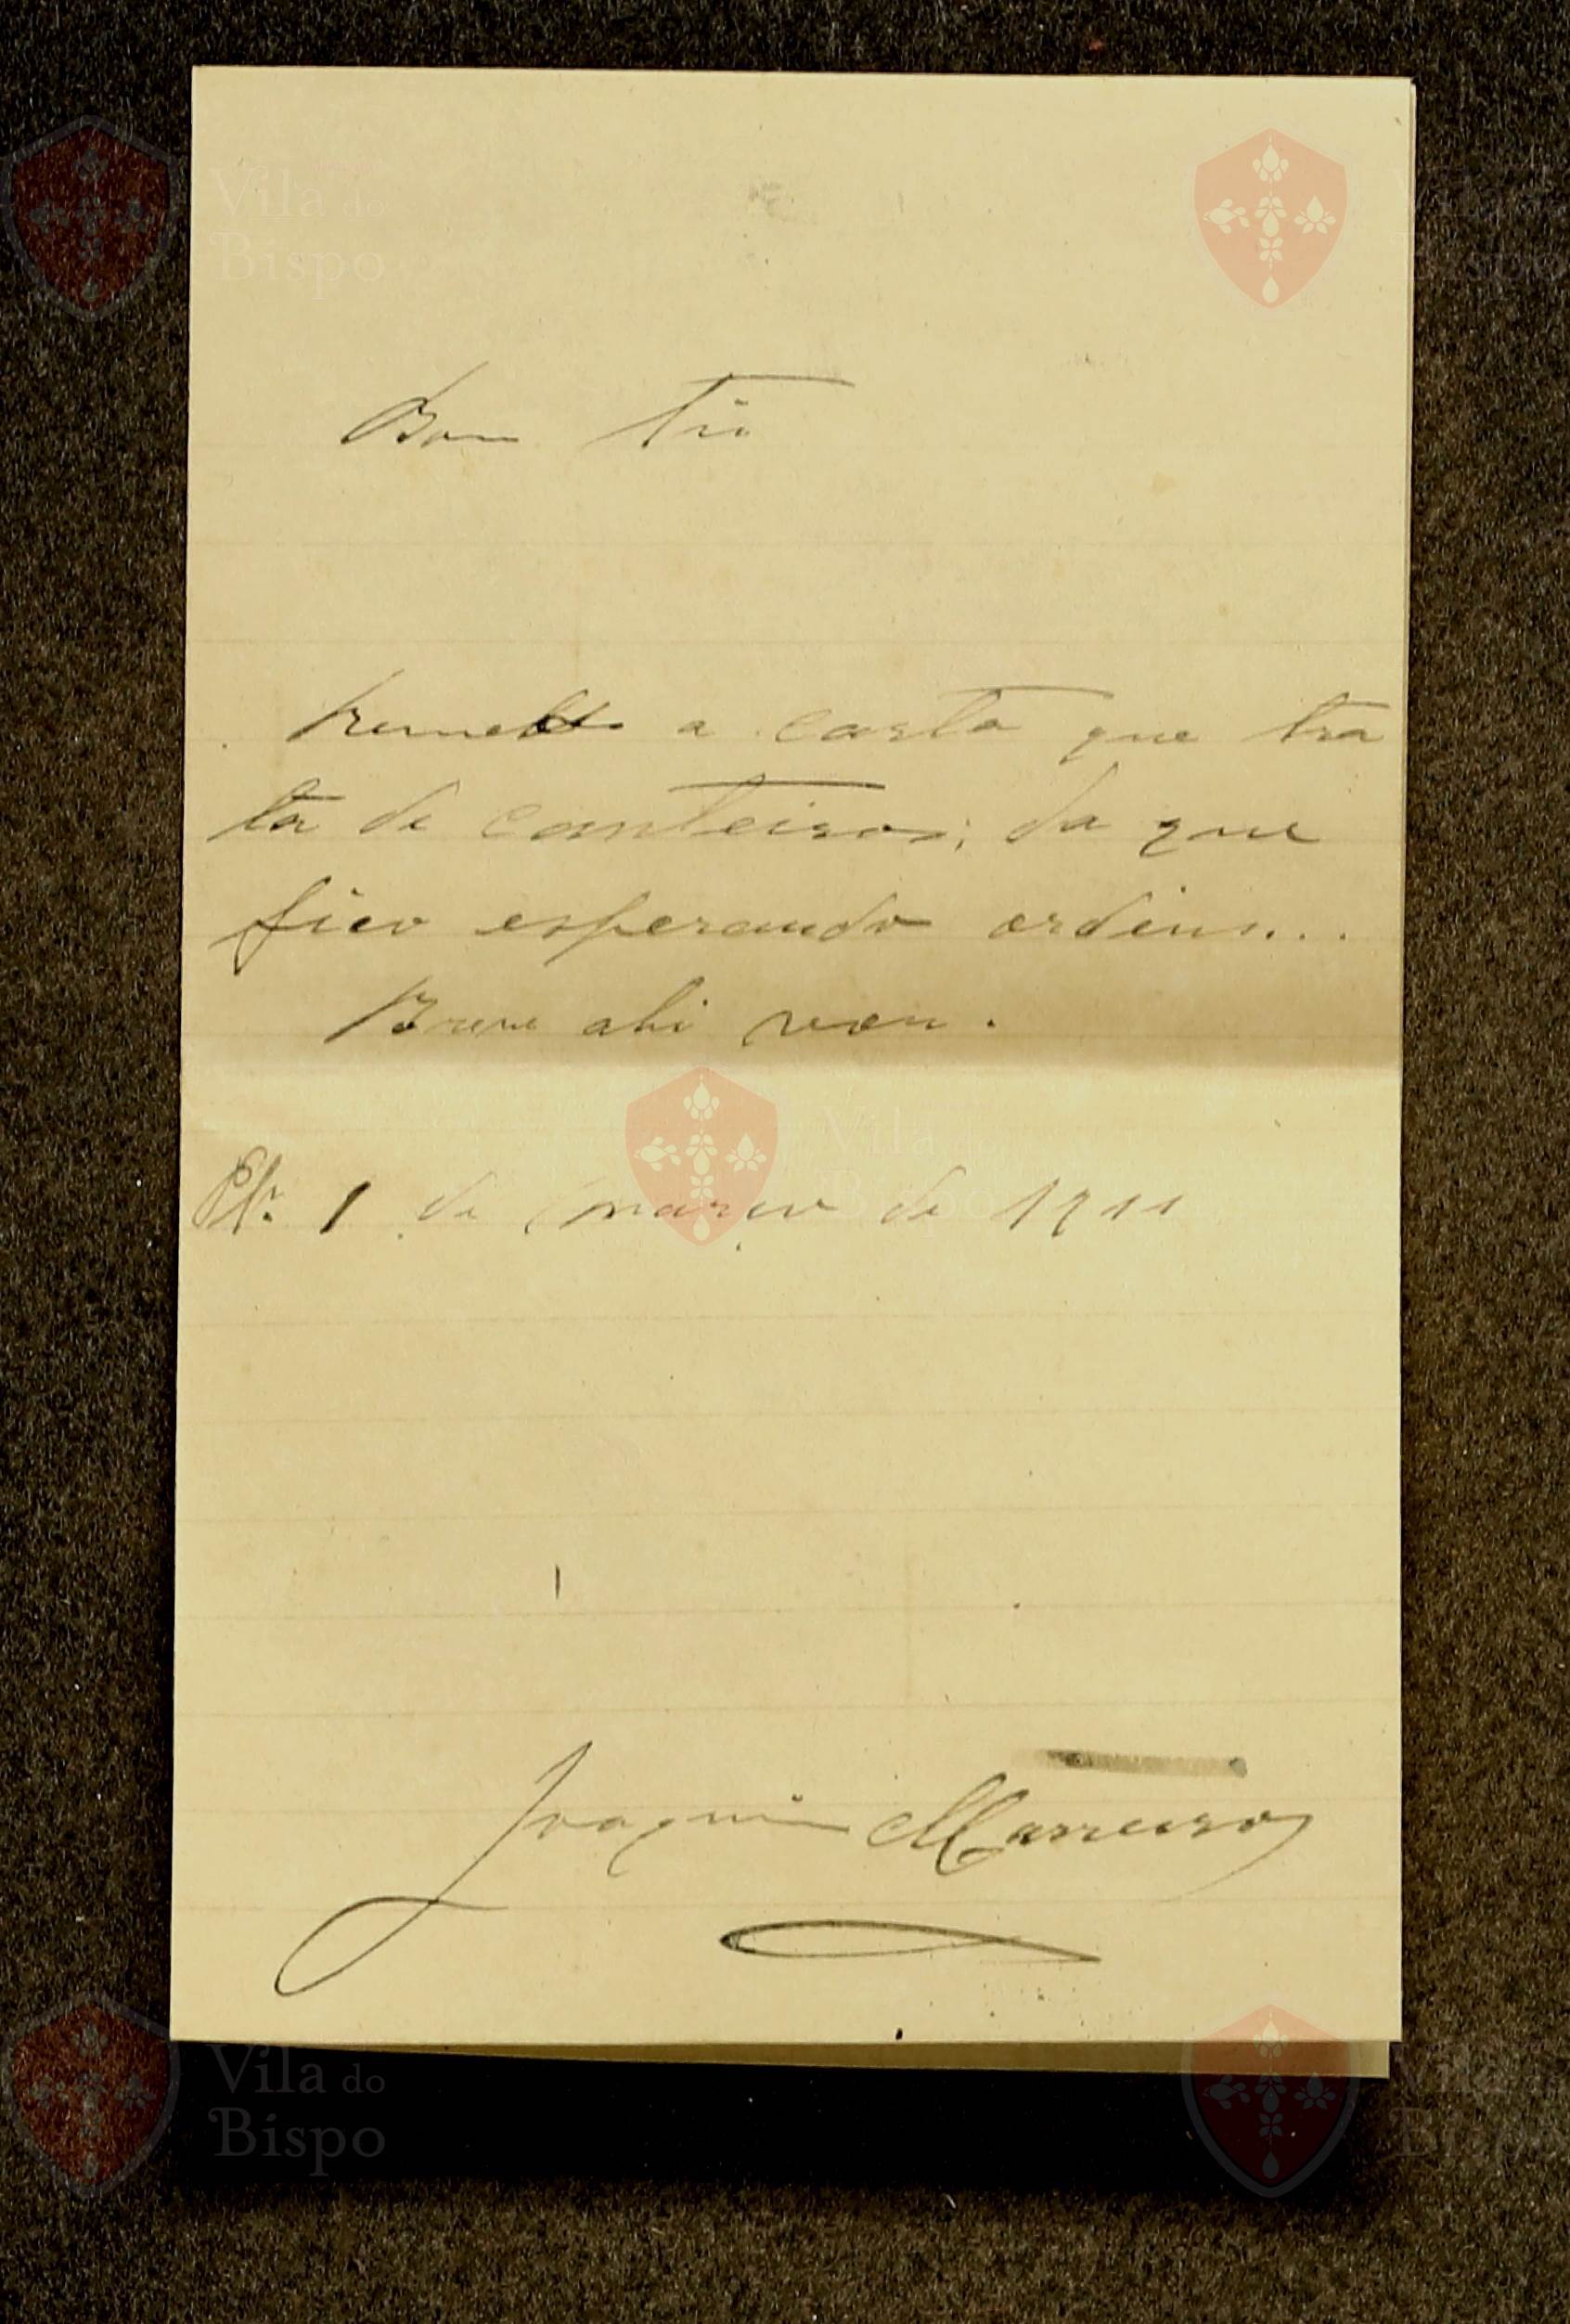 Vila do
Bispo
Bom Tio
Remetto a carta que tra
ta de canteiros; da que
fico esperando ordens...
Breve ahi vou.
1 de março de 1911
Vila
Bispo
Joaquim Marreiros
Vila do
Bispo